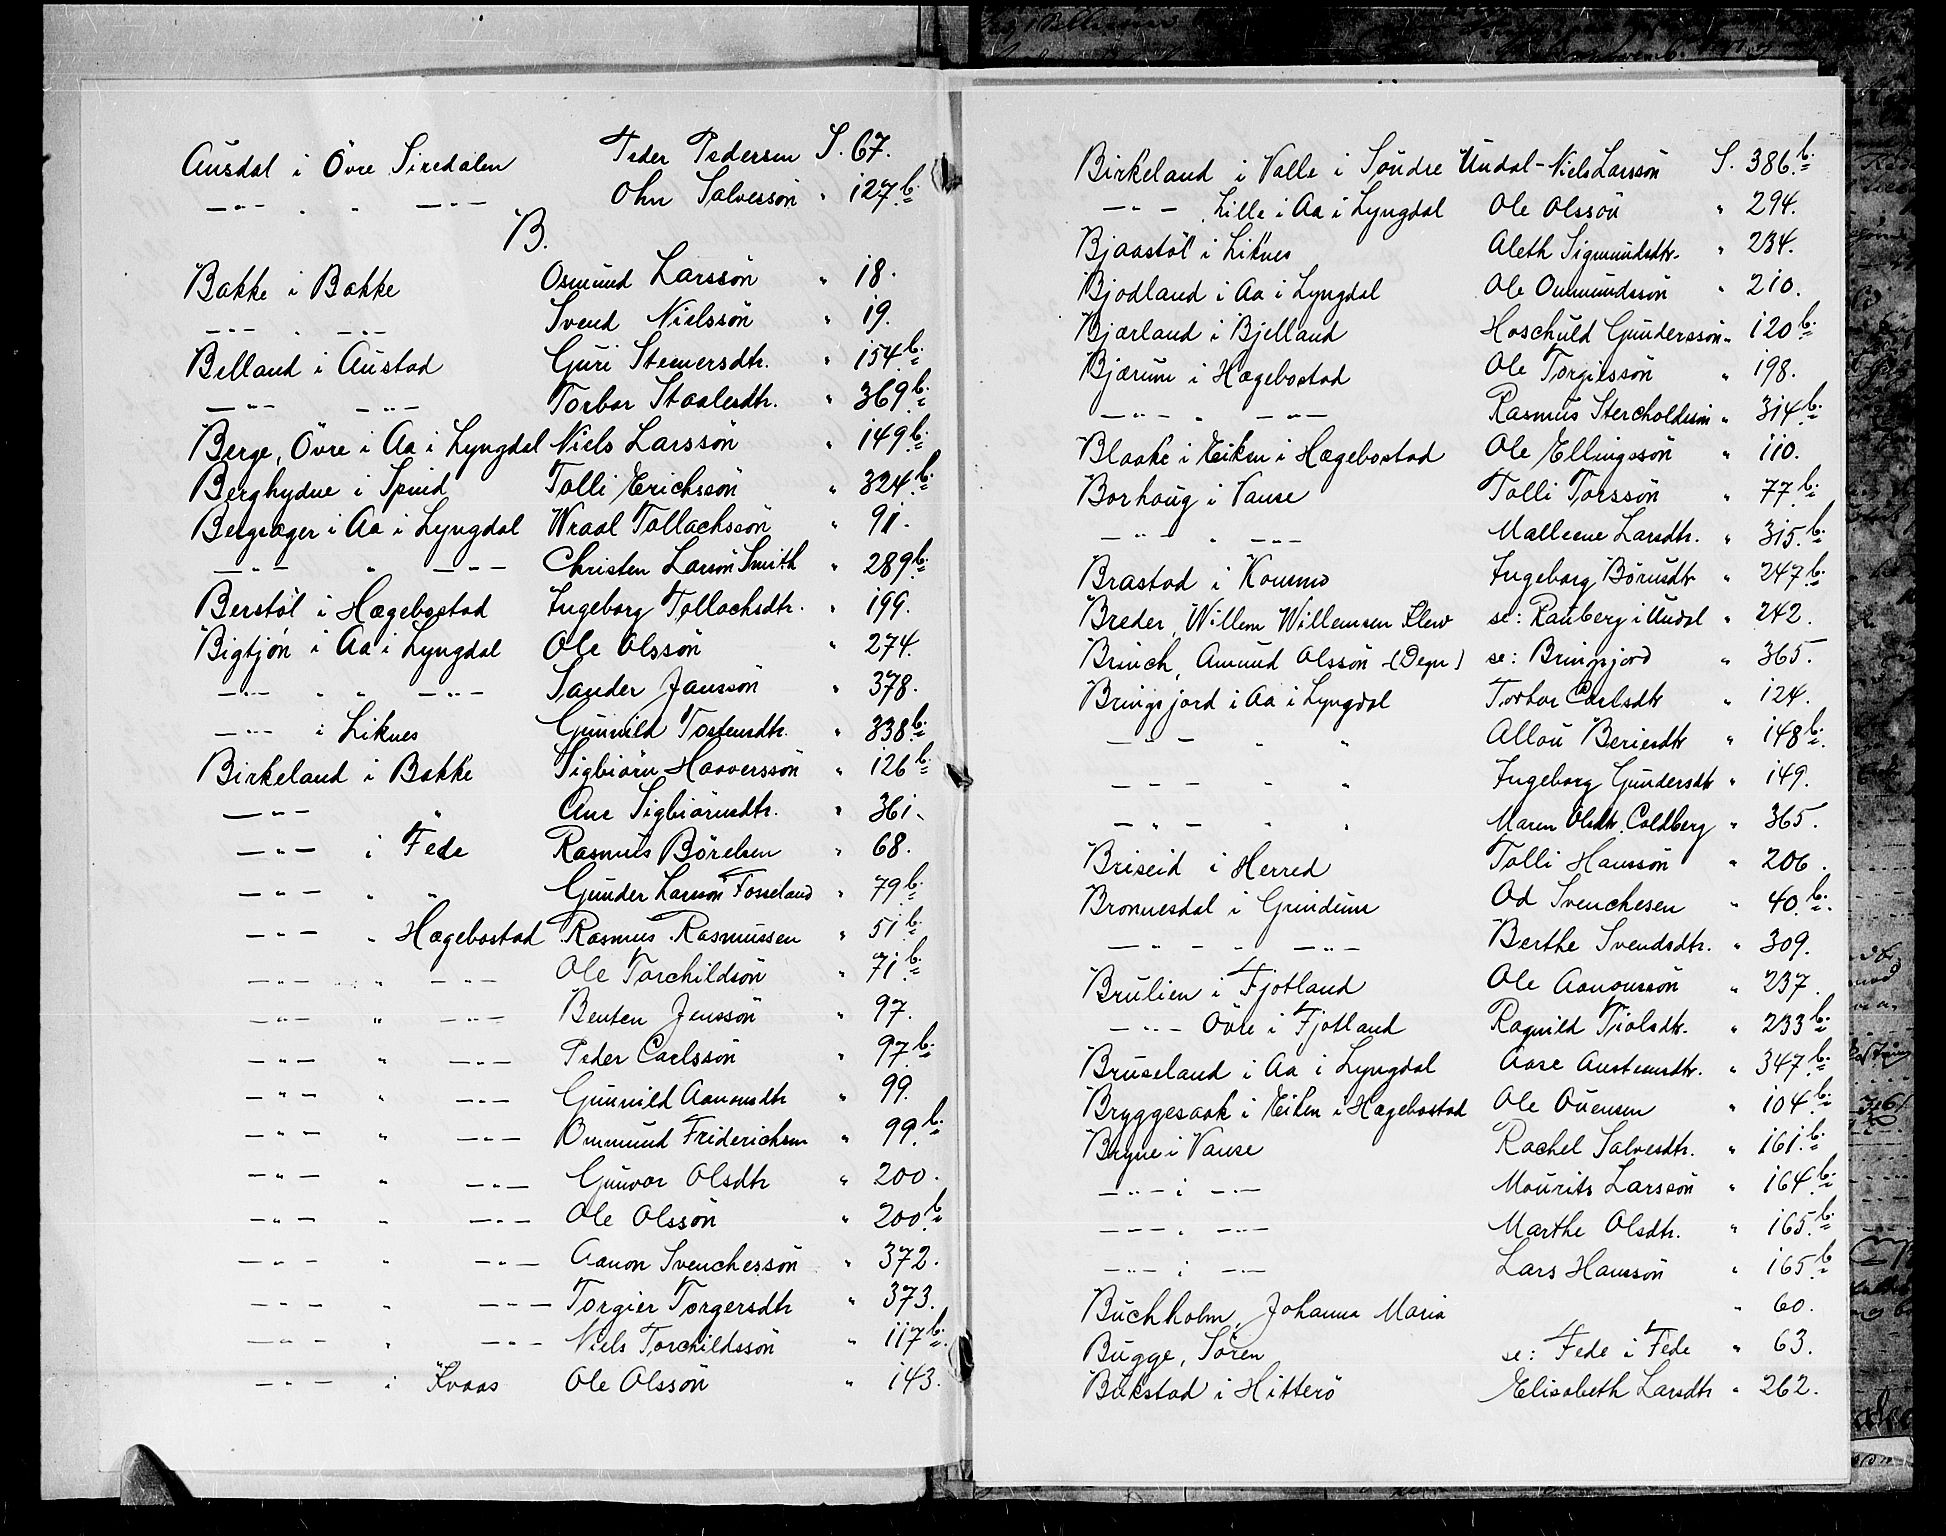 Ausdal i Övre Siredalen Peder Pedersen S. 67.
— " — " " — " — Ohn Salvessön " 127 b.
B.
Bakke i Bakke Osmund Larssön " 18.
— " — " — " — Svend Nielssön " 19.
Belland i Austad Guri Steinersdtr. " 154 b.
— " — — " — Torbor Staalesdtr. " 369 b.
Berge, Övre i Aa i Lyngdal Niels Larssön " 149 b.
Berghydne i Spind Tolli Erichssön " 324 b.
Bergsager i Aa i Lyngdal Wraal Tollachssön " 91.
— " — " — " — Christen Larsön Smith " 289 b.
Berstöl i Hægebostad Ingeborg Tollachsdtr. " 199.
Bigtjön i Aa i Lyngdal Ole Olssön " 274.
— " — " " — " — Sander Janssön " 378.
— " — i Liknes Gunnild Tostensdtr. " 338 b.
Birkeland i Bakke Sigbiörn Haaverssön " 126 b.
— " — " Ane Sigbiörnsdtr. " 361.
— " — i Fede Rasmus Börelsen " 68.
— " — " " Gunder Larsön Fosseland " 79 b.
— " — " Hægebostad Rasmus Rasmussen " 51 b.
— " — " — " — Ole Torchildsön " 71 b.
— " — " — " — Benten Jenssön " 97.
— " — " — " — Peder Carlssön " 97 b.
— " — " — " — Gunnild Aanonsdtr " 99.
— " — " — " — Ommund Friderichsen " 99 b.
— " — " — " — Gunvor Olsdtr " 200.
— " — " — " — Ole Olssön " 200 b.
— " — " — " — Aanon Svenchessön " 372.
— " — " — " — Torgier Torgersdtr " 373.
— " — " — " — Niels Torchildssön " 117 b.
— " — i Kvaas Ole Olssön " 143.
Birkeland i Valle i Söndre Undal - Niels Larssön S. 386 b.
— " — Lille i Aa i Lyngdal Ole Olssön " 294.
Bjaastöl i Liknes Aleth Sigmundsdtr. " 234.
Bjodland i Aa i Lyngdal Ole Ommundssön " 210.
Bjærland i Bjelland Hoschuld Gunderssön " 120 b.
Bjærum i Hægebostad Ole Torgilssön " 198.
— " — " — " — Rasmus Stercholdssön " 314 b.
Blaake i Eiken i Hægebostad Ole Ellingssön " 110.
Borhaug i Vanse Tolli Torssön " 77 b.
— " — " — " — Malleene Larsdtr. " 315 b.
Brastad i Konsmo Ingeborg Börusdtr " 247 b.
Breder, Willem Willemsen se: Rauberg i Undal " 242.
Brinch, Amund Olssön (Degn) se: Bringsjord " 365.
Bringsjord i Aa i Lyngdal Torbor Carlsdtr " 124.
— " — " " Allou Beriesdtr " 148 b.
— " — " " Ingeborg Gundersdtr " 149.
— " — " " Maren Olsdtr. Coldberg " 365.
Briseid i Herred Tolli Hanssön " 206.
Bronnesdal i Grindum Od Svenchesen " 40 b.
— " — " — " — Berthe Svendsdtr. " 309.
Brulien i Fjotland Ole Aanonssön " 237.
— " — Övre i Fjotland Ragnild Tiolsdtr. " 233 b.
Bruseland i Aa i Lyngdal Aase Austensdtr. " 347 b.
Bryggesaak i Eiken i Hægebostad Ole Ouensen " 104 b.
Bryne i Vanse Rachel Salvesdtr. " 161 b.
— " — i — " — Mourits Larssön " 164 b.
— " — " — " — Marthe Olsdtr. " 165 b.
— " — i — " — Lars Hanssön " 165 b.
Buchholm, Johanna Maria " 60.
Bugge, Sören se: Fede i Fede " 63.
Bukstad i Hitterö Elisabeth Larsdtr " 262.